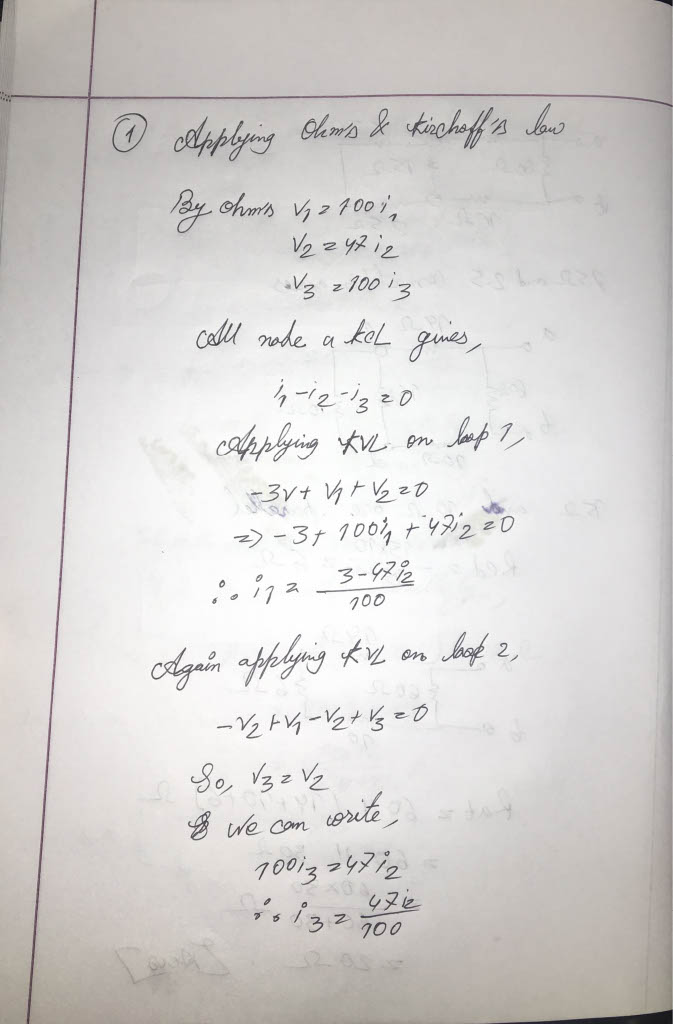 ① Applying Ohm's & Kirchoff's law
By ohm's V₁ = 100i₁
V₂ = 47i₂
V₃ = 100i₃
At node a KCL gives,
i₁-i₂-i₃=0
Applying KVL on loop 1,
-3v+V₁+V₂=0
=> -3+100i₁+47i₂=0
∴ i₁ = (3-47i₂)/100
Again applying KVL on loop 2,
-V₂+V₁-V₂+V₃=0
So, V₃=V₂
We can write,
100i₃=47i₂
∴ i₃ = 47i₂/100